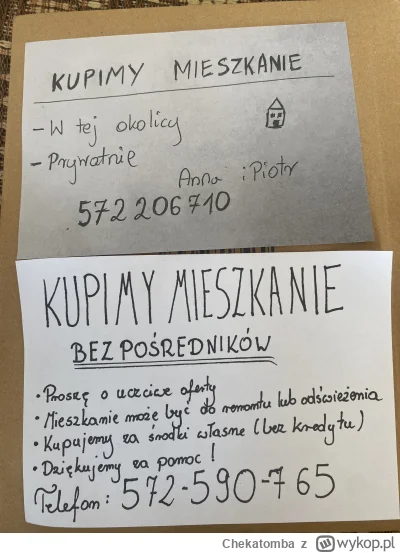 KUPIMY MIESZKANIE
- W tej okolicy
- Prywatnie
Anna i Piotr
572 206 710
KUPIMY MIESZKANIE
BEZ POŚREDNIKÓW
• Proszę o uczciwe oferty
• Mieszkanie może być do remontu lub odświeżenia
• Kupujemy za środki własne (bez kredytu)
• Dziękujemy za pomoc!
Telefon: 572-590-765
Chekatomba z wykop.pl